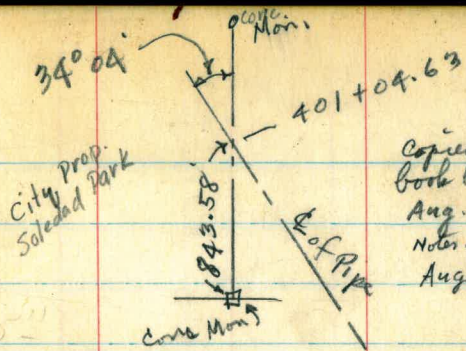 conc.
Mon.
34° 04'
401 + 04.63
City Prop.
Soledad Park
1843.58'
℄ of Pipe
Conc Mon
Copied
book
Aug.
Notes
Aug